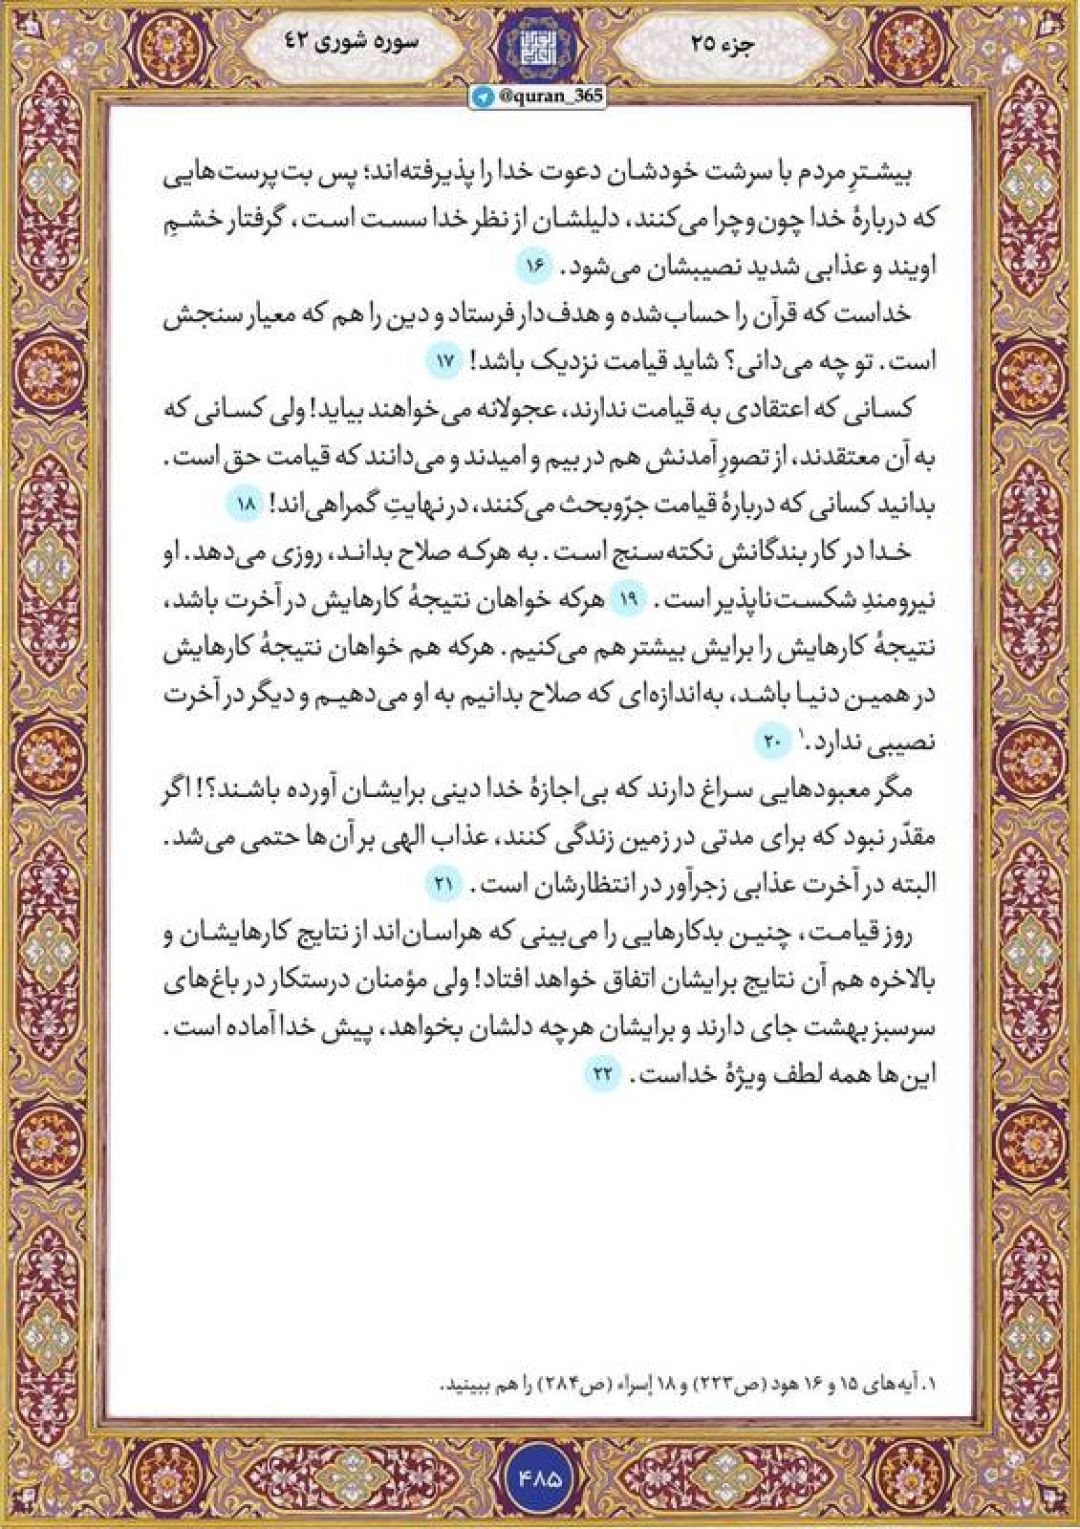 جزء ۲۵
سوره شوری ۴۲
@quran_365
بیشترِ مردم با سرشت خودشان دعوت خدا را پذیرفته‌اند؛ پس بت‌پرست‌هایی
که دربارهٔ خدا چون‌وچرا می‌کنند، دلیلشان از نظر خدا سست است، گرفتار خشمِ
اویند و عذابی شدید نصیبشان می‌شود. ۱۶
خداست که قرآن را حساب‌شده و هدف‌دار فرستاد و دین را هم که معیار سنجش
است. تو چه می‌دانی؟ شاید قیامت نزدیک باشد! ۱۷
کسانی که اعتقادی به قیامت ندارند، عجولانه می‌خواهند بیاید! ولی کسانی که
به آن معتقدند، از تصورِ آمدنش هم در بیم و امیدند و می‌دانند که قیامت حق است.
بدانید کسانی که دربارهٔ قیامت جرّوبحث می‌کنند، در نهایتِ گمراهی‌اند! ۱۸
خدا در کار بندگانش نکته‌سنج است. به هرکه صلاح بداند، روزی می‌دهد. او
نیرومندِ شکست‌ناپذیر است. ۱۹ هرکه خواهان نتیجهٔ کارهایش در آخرت باشد،
نتیجهٔ کارهایش را برایش بیشتر هم می‌کنیم. هرکه هم خواهان نتیجهٔ کارهایش
در همین دنیا باشد، به‌اندازه‌ای که صلاح بدانیم به او می‌دهیم و دیگر در آخرت
نصیبی ندارد.۱ ۲۰
مگر معبودهایی سراغ دارند که بی‌اجازهٔ خدا دینی برایشان آورده باشند؟! اگر
مقدّر نبود که برای مدتی در زمین زندگی کنند، عذاب الهی بر آن‌ها حتمی می‌شد.
البته در آخرت عذابی زجرآور در انتظارشان است. ۲۱
روز قیامت، چنین بدکارهایی را می‌بینی که هراسان‌اند از نتایج کارهایشان و
بالاخره هم آن نتایج برایشان اتفاق خواهد افتاد! ولی مؤمنان درستکار در باغ‌های
سرسبز بهشت جای دارند و برایشان هرچه دلشان بخواهد، پیش خدا آماده است.
این‌ها همه لطف ویژهٔ خداست. ۲۲
۱. آیه‌های ۱۵ و ۱۶ هود (ص۲۲۳) و ۱۸ إسراء (ص۲۸۴) را هم ببینید.
۴۸۵